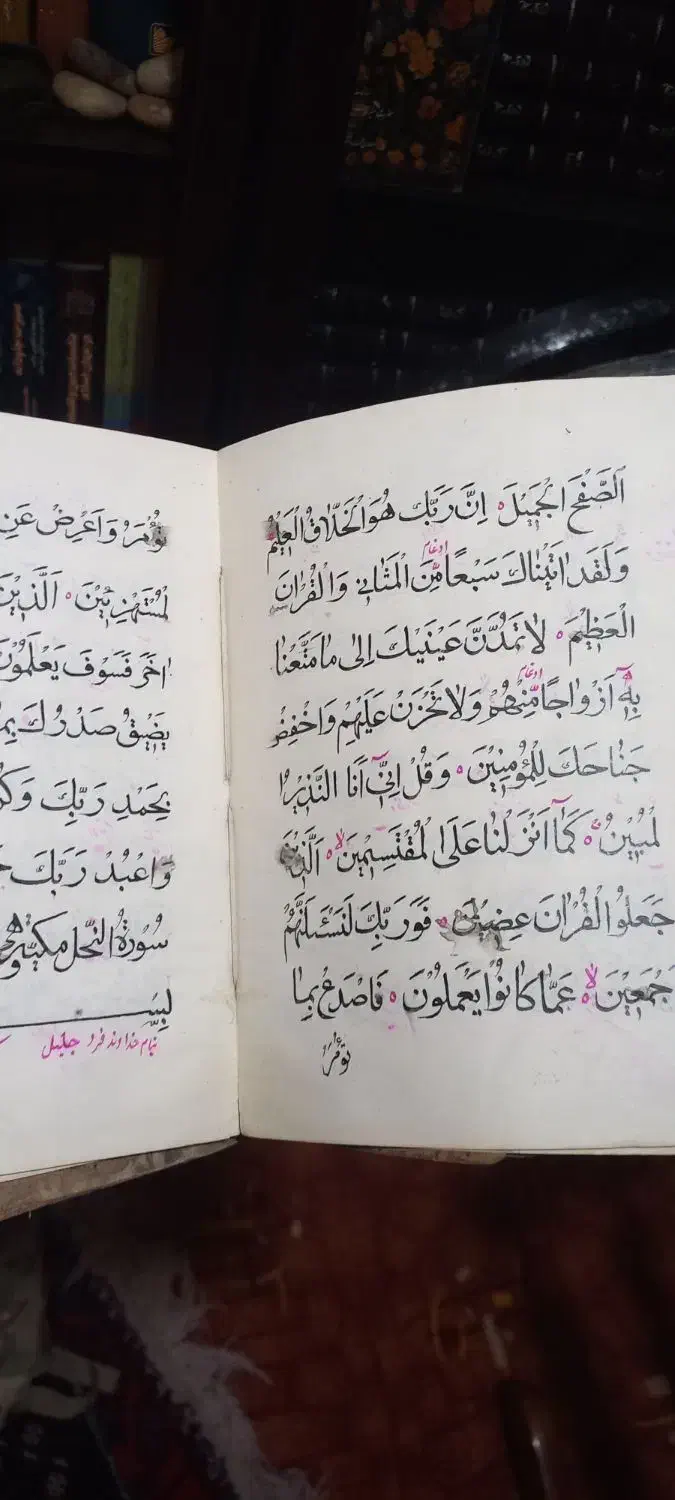 اَلصَّفْحَ الْجَمِيْلَ اِنَّ رَبَّكَ هُوَ الْخَلّٰاقُ الْعَلِيْمُ
وَلَقَدْ اٰتَيْنٰاكَ سَبْعًا مِّنَ الْمَثٰانِيْ وَالْقُرْاٰنَ
ادغام
الْعَظِيْمَ لٰا تَمُدَّنَّ عَيْنَيْكَ اِلٰى مٰا مَتَّعْنٰا
بِهٖٓ اَزْوٰاجًا مِّنْهُمْ وَلٰا تَحْزَنْ عَلَيْهِمْ وَاخْفِضْ
ادغام
جَنٰاحَكَ لِلْمُؤْمِنِيْنَ وَقُلْ اِنِّيْٓ اَنَا النَّذِيْرُ ا
لْمُبِيْنُ كَمٰٓا اَنْزَلْنٰا عَلَى الْمُقْتَسِمِيْنَ لا اَلَّذِيْنَ
جَعَلُوا الْقُرْاٰنَ عِضِيْنَ فَوَرَبِّكَ لَنَسْـَٔلَنَّهُمْ
جْمَعِيْنَ لا عَمّٰا كٰانُوْا يَعْمَلُوْنَ فَاصْدَعْ بِمٰا
تُؤْمَرُ
تُؤْمَرُ وَاَعْرِضْ عَنِ
لْمُسْتَهْزِئِيْنَ اَلَّذِيْنَ
اٰخَرَ فَسَوْفَ يَعْلَمُوْنَ
يَضِيْقُ صَدْرُكَ بِمٰا
بِحَمْدِ رَبِّكَ وَكُنْ
وَاعْبُدْ رَبَّكَ
سُوْرَةُ النَّحْلِ مَكِّيَّةٌ
بِسْـــــ
بنام خداوند فرد جلیل